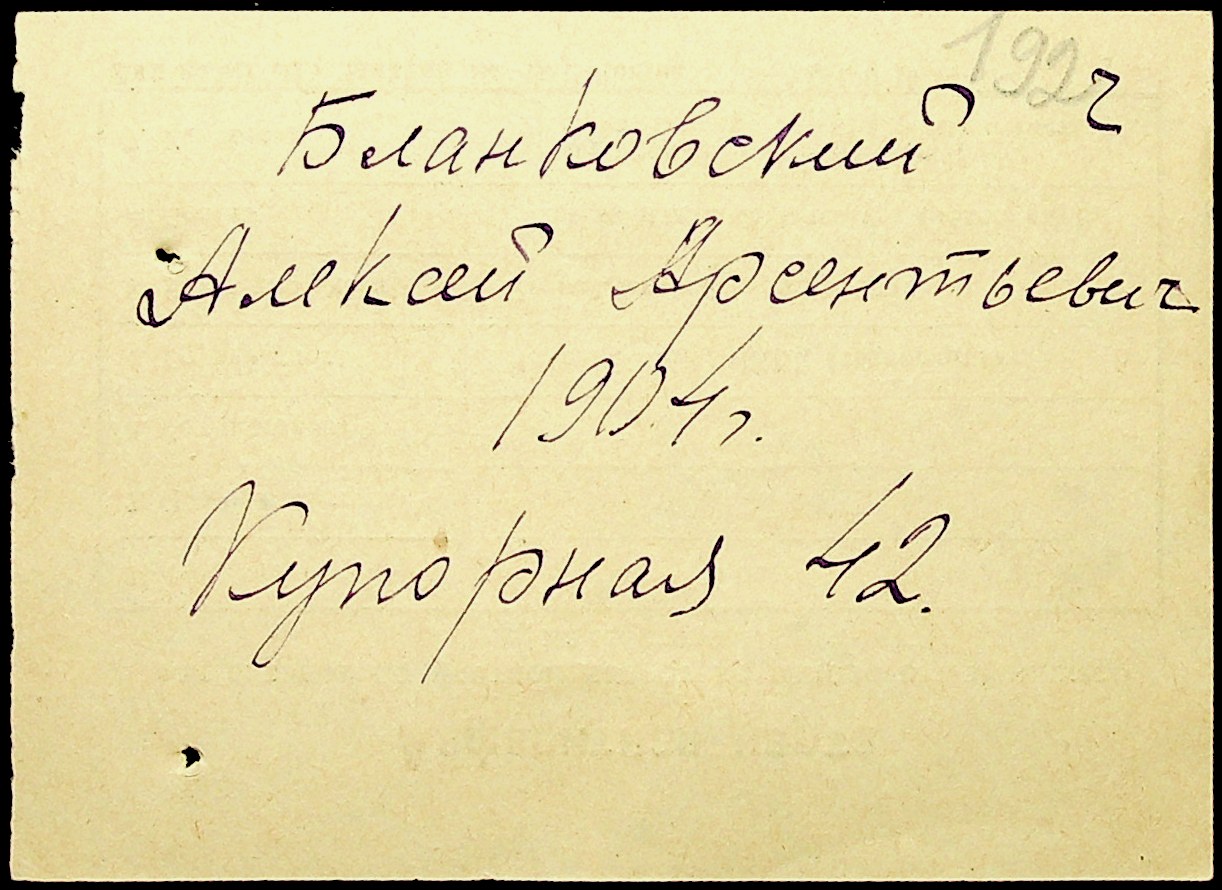 192
ч
Бланковский
Алексей Арсентьевич
1904 г.
Купорная 42.